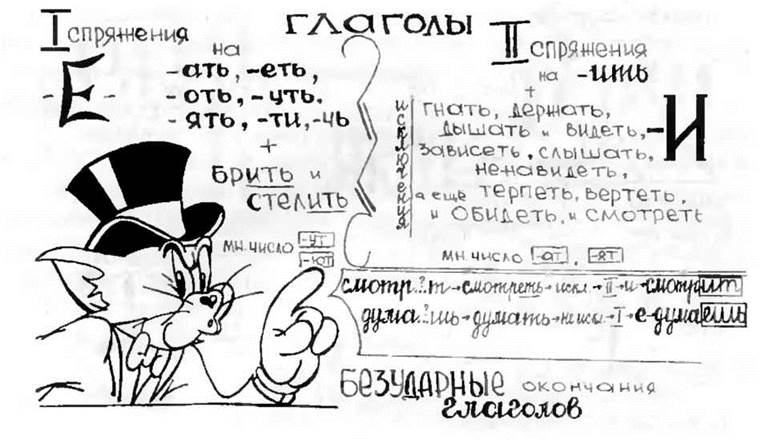 ГЛАГОЛЫ
I спряжения
на
-ать, -еть,
-Е- -оть, -уть.
-ять, -ти, -чь
+
брить и
стелить
мн. число -ут
-ют
II спряжения
на -ить
+
исключения
гнать, держать,
дышать и видеть, -И
зависеть, слышать,
ненавидеть,
а еще терпеть, вертеть,
и обидеть, и смотреть
мн. число -ат, -ят
смотр..т→смотреть→искл.→II→и→смотрит
дума..шь→думать→не искл→I→е→думаешь
БЕЗУДАРНЫЕ окончания
глаголов